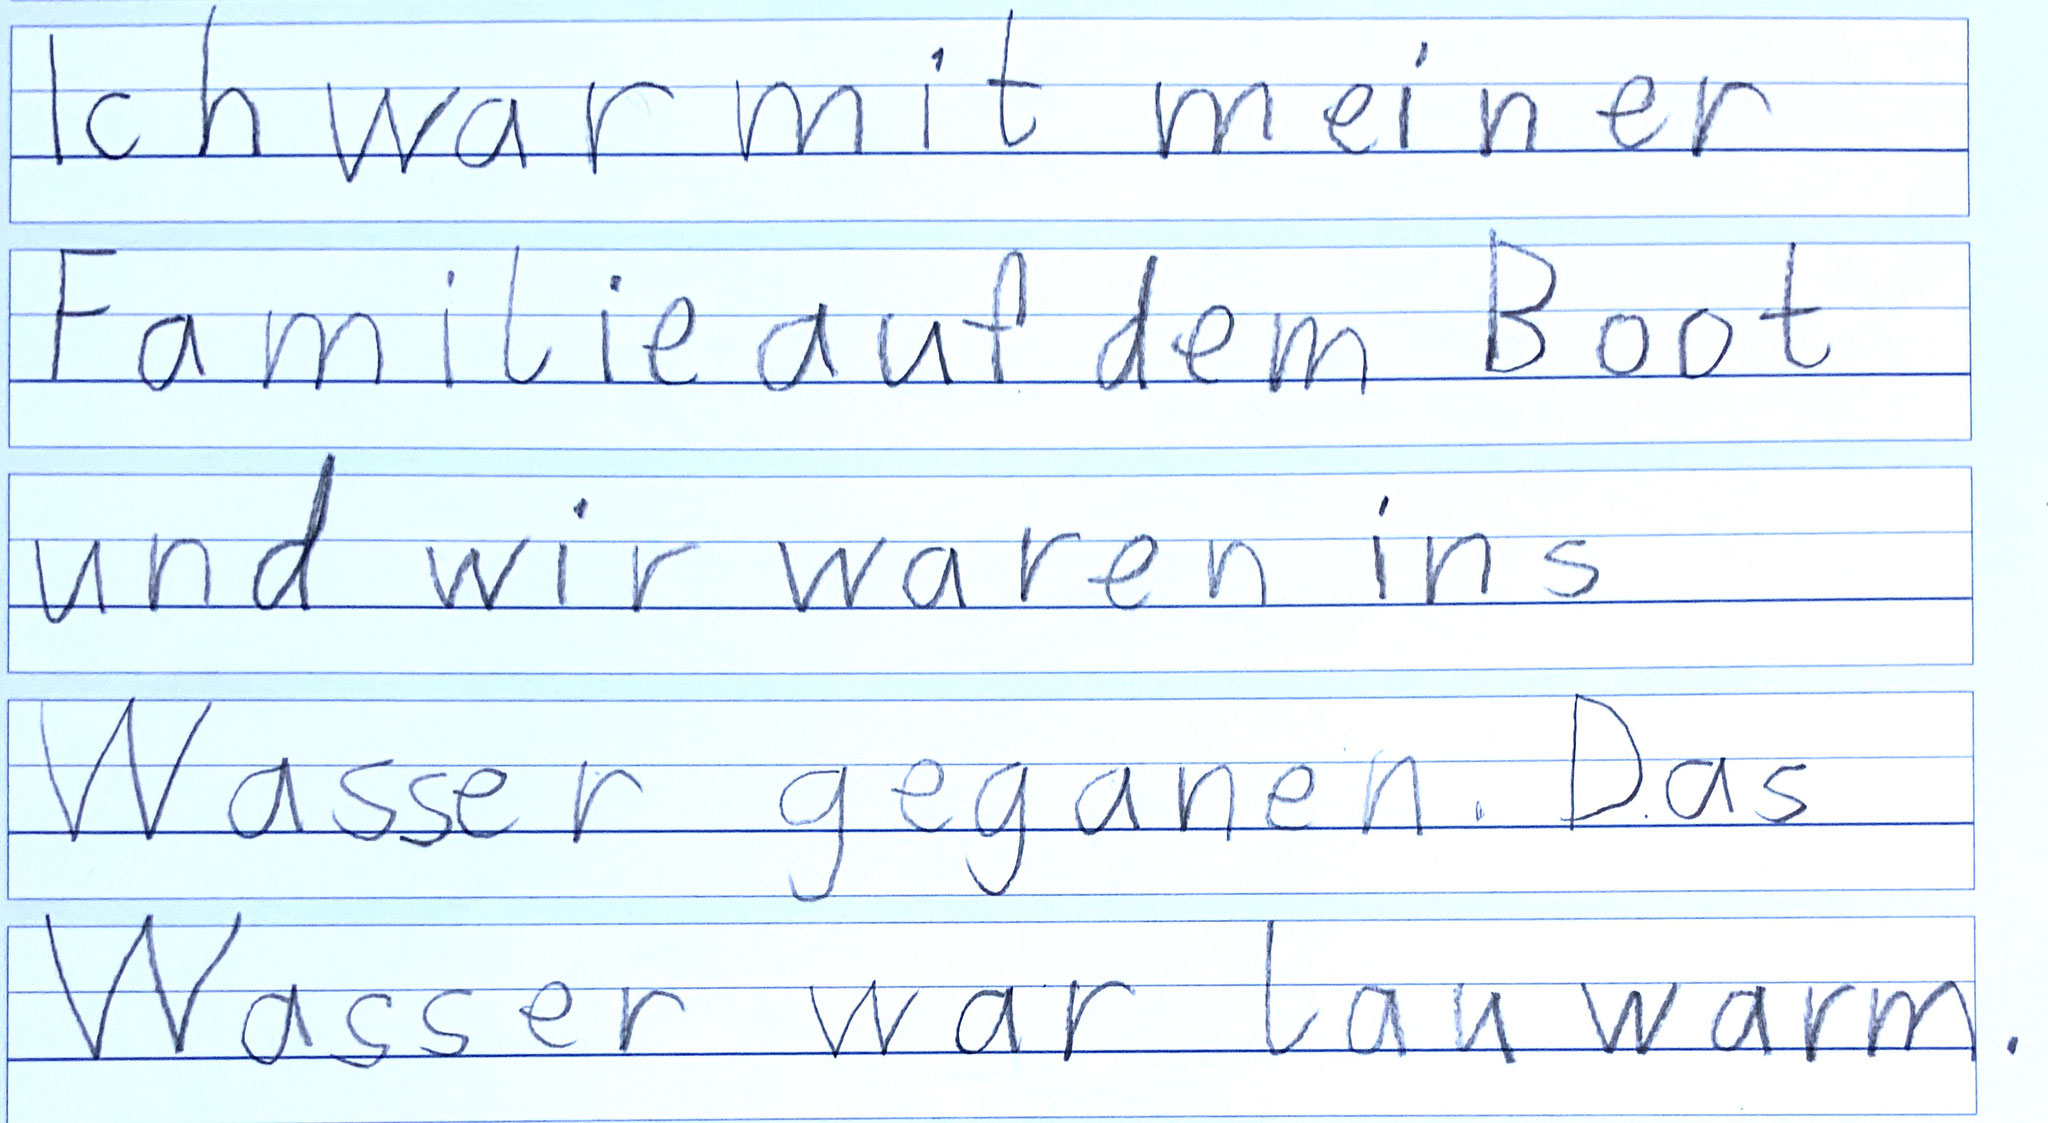 Ich war mit meiner
Familie auf dem Boot
und wir waren ins
Wasser geganen. Das
Wasser war lau warm.